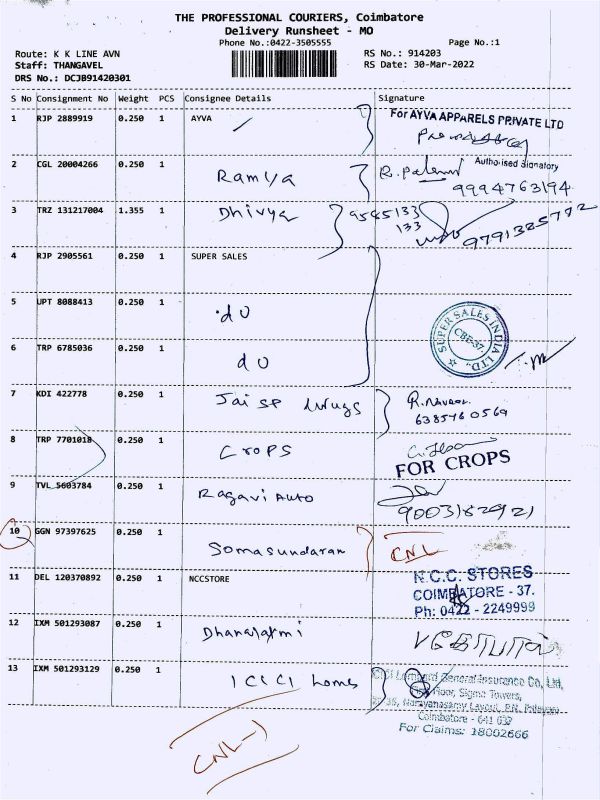 THE PROFESSIONAL COURIERS, Coimbatore
Delivery Runsheet - MO
Phone No.:0422-3505555
Page No.:1
Route: K K LINE AVN
RS No.: 914203
Staff: THANGAVEL
RS Date: 30-Mar-2022
DRS No.: DCJB91420301
S No Consignment No Weight PCS Consignee Details Signature
1 RJP 2889919 0.250 1 AYVA For AYVA APPARELS PRIVATE LTD
Authorised Signatory
2 CGL 20004266 0.250 1 Ramya 9994763194
3 TRZ 131217004 1.355 1 Dhivya 9585133
133
4 RJP 2905561 0.250 1 SUPER SALES
5 UPT 8088413 0.250 1 do
SUPER SALES INDIA LTD.
CBE-37.
6 TRP 6785036 0.250 1 do
7 KDI 422778 0.250 1 Jai sp
8 TRP 7701018 0.250 1 Crops
FOR CROPS
9 TVL 5603784 0.250 1 Ragavi Auto
10 GGN 97397625 0.250 1 Somasundaram CNL
11 DEL 120370892 0.250 1 NCCSTORE N.C.C. STORES
COIMBATORE - 37.
Ph: 0422 - 2249999
12 IXM 501293087 0.250 1
13 IXM 501293129 0.250 1 ICICI Lombard General Insurance Co, Ltd,
Floor, Sigma Towers,
Coimbatore - 641 037
For Claims: 18002666
CNL-1